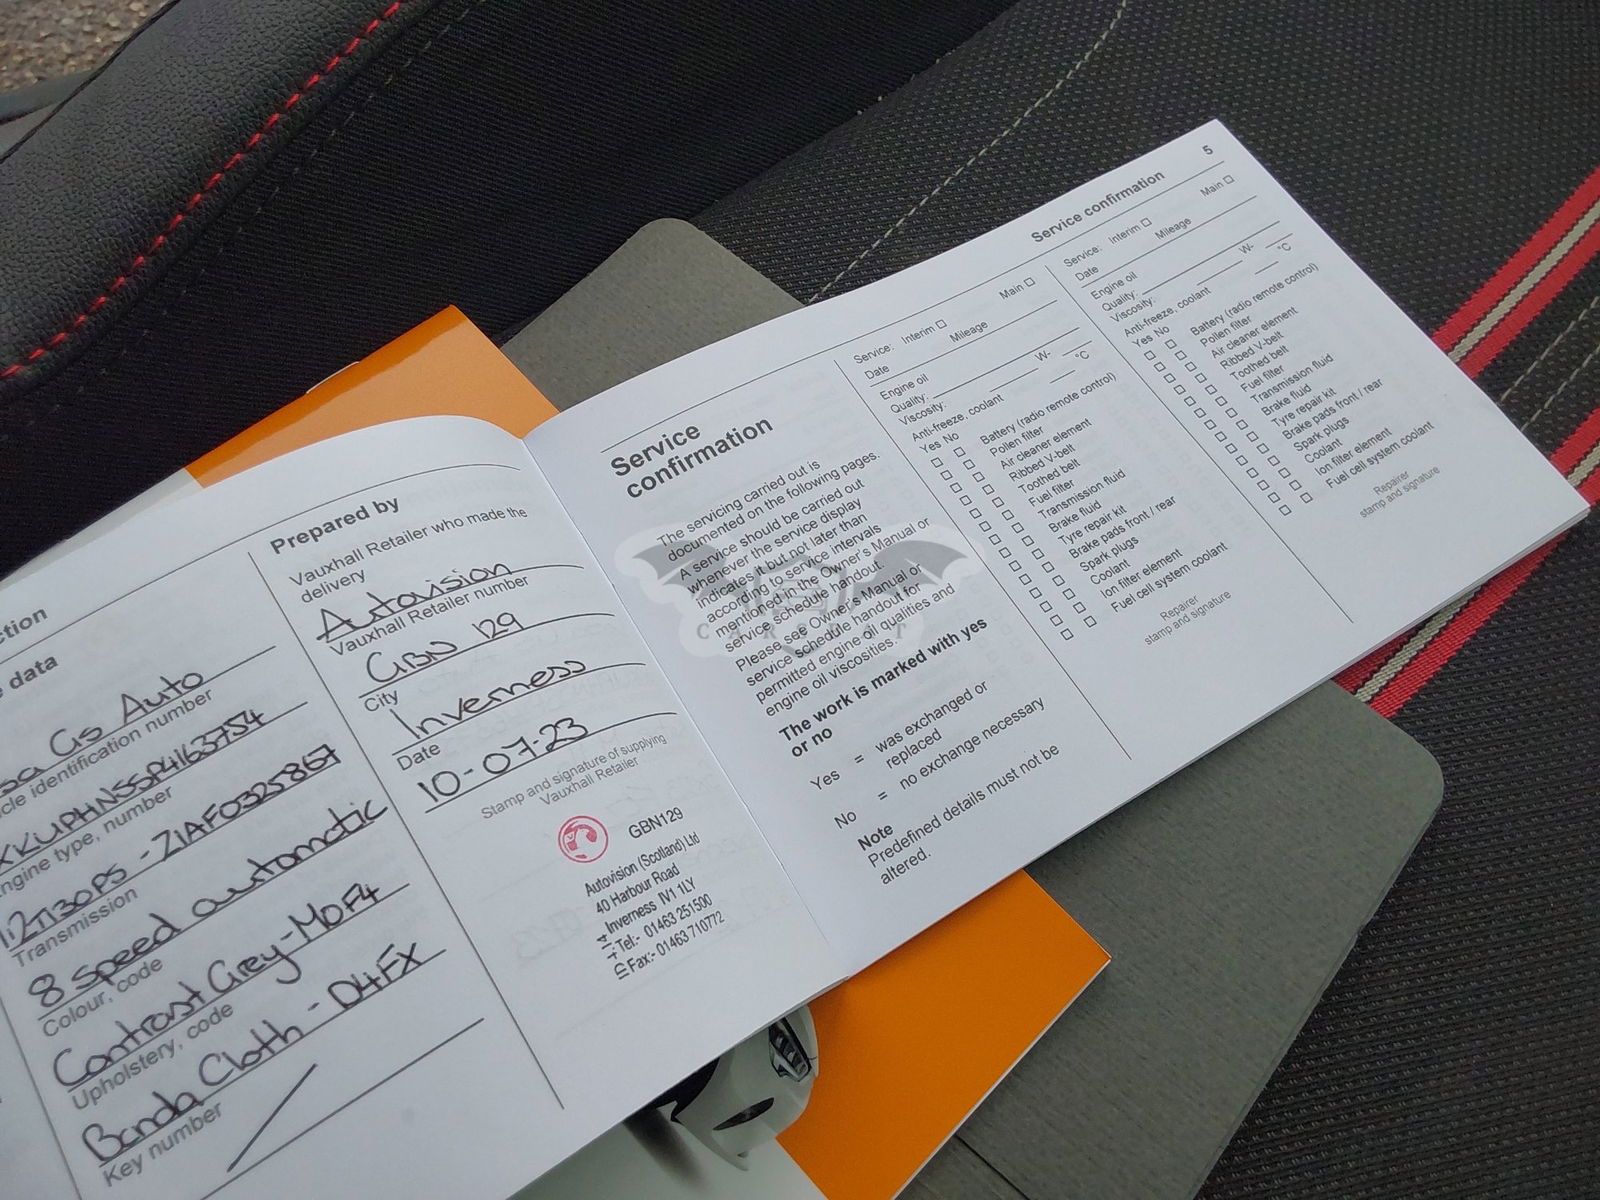 ction
e data
sa Gs Auto
cle identification number
XKUPHNSSP4163754
ngine type, number
1.2T130PS - Z1AF0325867
Transmission
8 speed automatic
Colour, code
Contrast Grey - M0F4
Upholstery, code
Banda Cloth - D4FX
Key number
Prepared by
Vauxhall Retailer who made the
delivery
Autovision
Vauxhall Retailer number
GBN 129
City
Inverness
Date
10-07-23
Stamp and signature of supplying
Vauxhall Retailer
GBN129
Autovision (Scotland) Ltd
40 Harbour Road
Inverness IV1 1LY
Tel:- 01463 251500
Fax:- 01463 710772
Service
confirmation
The servicing carried out is
documented on the following pages.
A service should be carried out
whenever the service display
indicates it but not later than
according to service intervals
mentioned in the Owner's Manual or
service schedule handout.
Please see Owner's Manual or
service schedule handout for
permitted engine oil qualities and
engine oil viscosities.
The work is marked with yes
or no
Yes = was exchanged or
replaced
No = no exchange necessary
Note
Predefined details must not be
altered.
Service: Interim □ Main □
Date Mileage
Engine oil
Quality:
Viscosity: W-
Anti-freeze, coolant °C
Yes No
□ □ Battery (radio remote control)
□ □ Pollen filter
□ □ Air cleaner element
□ □ Ribbed V-belt
□ □ Toothed belt
□ □ Fuel filter
□ □ Transmission fluid
□ □ Brake fluid
□ □ Tyre repair kit
□ □ Brake pads front / rear
□ □ Spark plugs
□ □ Coolant
□ □ Ion filter element
□ □ Fuel cell system coolant
Repairer
stamp and signature
Service confirmation 5
Service: Interim □ Main □
Date Mileage
Engine oil
Quality:
Viscosity: W-
Anti-freeze, coolant °C
Yes No
□ □ Battery (radio remote control)
□ □ Pollen filter
□ □ Air cleaner element
□ □ Ribbed V-belt
□ □ Toothed belt
□ □ Fuel filter
□ □ Transmission fluid
□ □ Brake fluid
□ □ Tyre repair kit
□ □ Brake pads front / rear
□ □ Spark plugs
□ □ Coolant
□ □ Ion filter element
□ □ Fuel cell system coolant
Repairer
stamp and signature